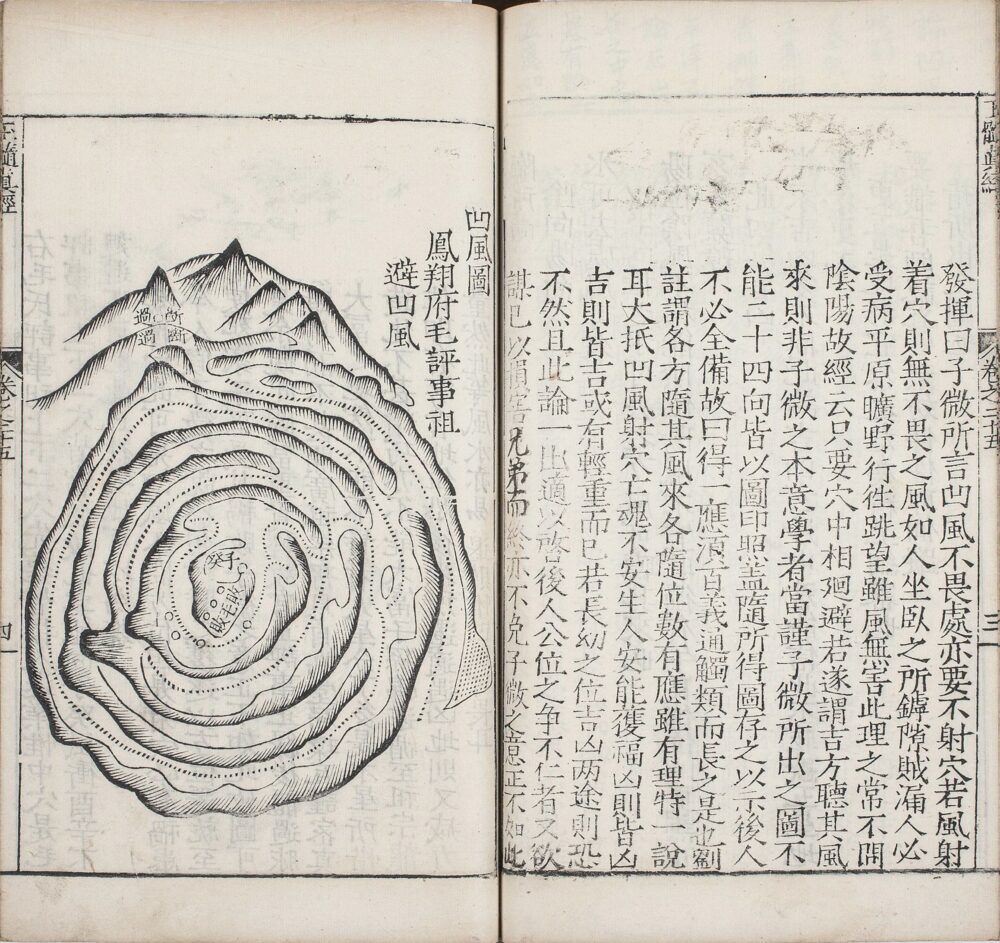 玉髓真經
卷之二十五
三
發揮曰子微所言凹風不畏處亦要不射穴若風射
着穴則無不畏之風如人坐臥之所罅隙賊漏人必
受病平原曠野行徃跳望雖風無害此理之常不関
陰陽故經云只要穴中相廻避若遂謂吉方聽其風
來則非子微之本意學者當謹子微所出之圖不
能二十四向皆以圖印照盖隨所得圖存之以示後人
不必全備故曰得一應須百義通觸類而長之是也劉
註謂各方隨其風來各隨位數有應雖有理特一說
耳大抵凹風射穴亡魂不安生人安能獲福凶則皆凶
吉則皆吉或有輕重而已若長幼之位吉凶两途則恐
不然且此論一出適以啓後人公位之争不仁者又欲
謀已以損害兄弟而終亦不免子微之意正不如此
凹風圖
鳳翔府毛評事祖
避凹風
過斷
過斷
癸子
玉髓真經
卷之二十五
四